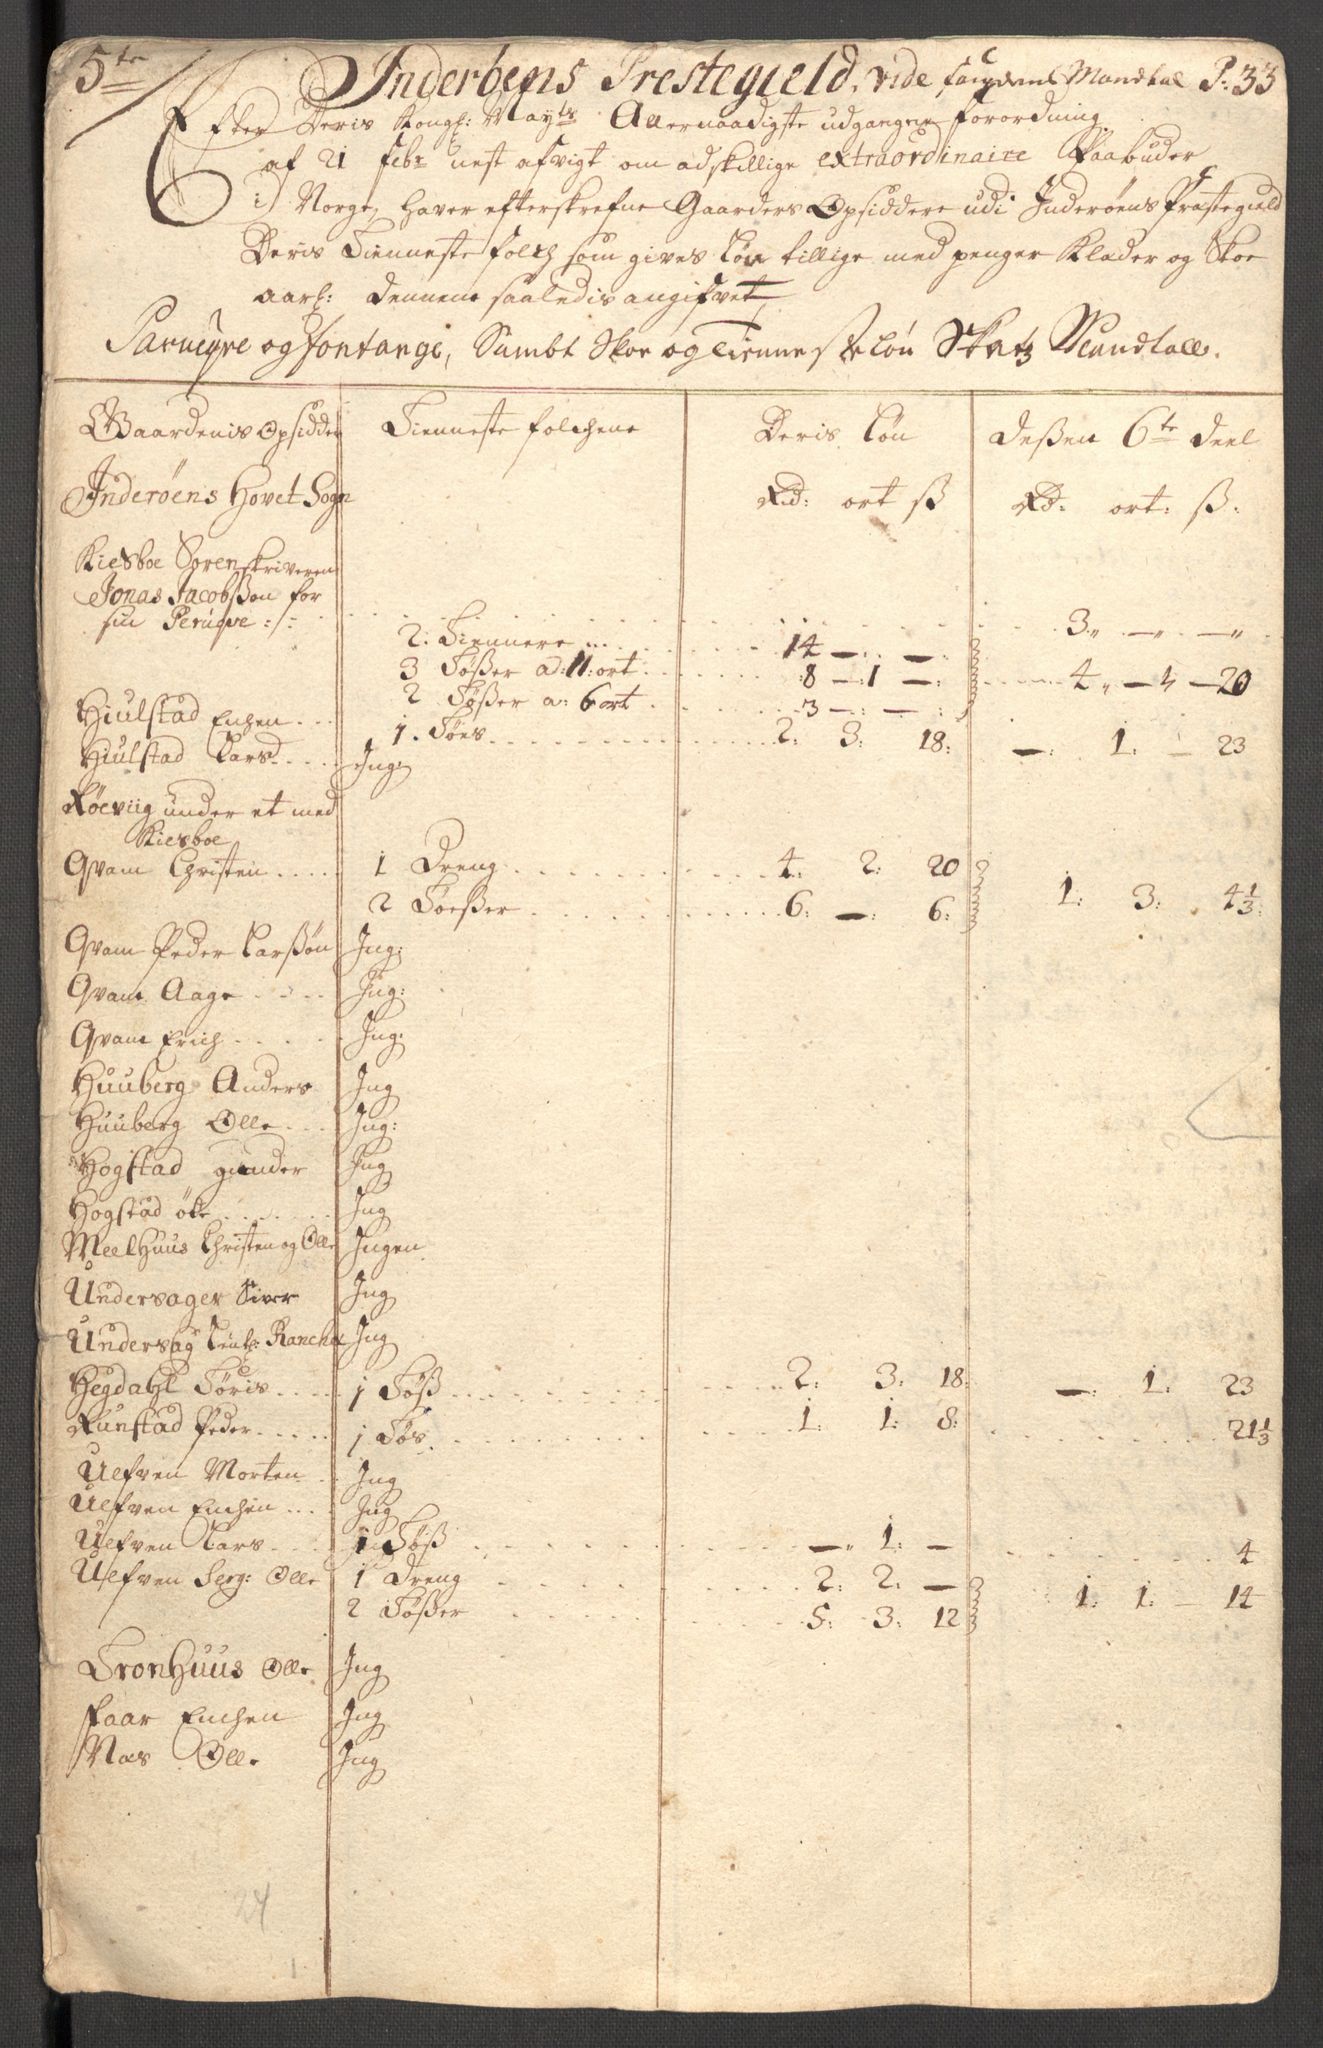 5te
Inderöens Prestegield, vide fougdens Mandtal P: 33
Efter Deris Kongl: Mayts Allernaadigste udgangne forordning
af 21 Febr nest afvigt om adskillige extraordinaire Paabuder
i Norge, haver efterskrefne Gaarders Opsiddere udi Inderöens Præstegield
Deris Tienneste folch som gives Løn tillige med penger Klæder og Skoe
aarl: dennem saaledis angifvet
Parucqve og fontange, Sambt Skoe og Tienneste løn Skatz Mandtall.
Gaardenis Opsidder Tienneste folchene Deris Løn deßen 6te deel
Inderöens Hovet Sogn Rd: ort ß Rd: ort: ß:
Kiesboe Sorenskriveren
Jonas Jacobßøn for
sin Peruqve :/: 3 " — " — "
2. Tiennere 14 — : — :
3 Tøßer ad: 11: ort 8 — 1 — : 4 " — " — 20
2 Tøßer a: 6 ort 3 — : — :
Hiulstad Enchen 1. Tøes 2: 3: 18: — : 1: — 23
Hiulstad Lars Ing:
Røeviig under et med
Kiesboe
Qvam Christen 1 Dreng 4: 2: 20
2 Tøeßer 6: — : 6: 1: 3: 4 1/3:
Qvam Peder Larßøn Ing:
Qvam Aage Ing:
Qvam Erich Ing:
Huuberg Anders Ing
Huuberg Olle Ing:
Hogstad gunder Ing
Hogstad Ing
MeelHuus Christen og Olle Ingen
Undersager Siver Ing
Undersag Ing
Hegdahl Tøris 1 Tøß 2: 3: 18: — : 1: 23
Runstad Peder 1 Tøs 1: 1: 8: 21 1/3
Ulfven Morten Ing
Ulfven Enchen Ing
Ulfven Lars 1 Tøß — " 1: — 4
Ulfven Serg: Olle 1 Dreng 2: 2: —
2 Tøßer 5: 3: 12 1: 1: — 14
TronHuus Olle Ing
Faar Enchen Ing
Næs Olle Ing
24
1